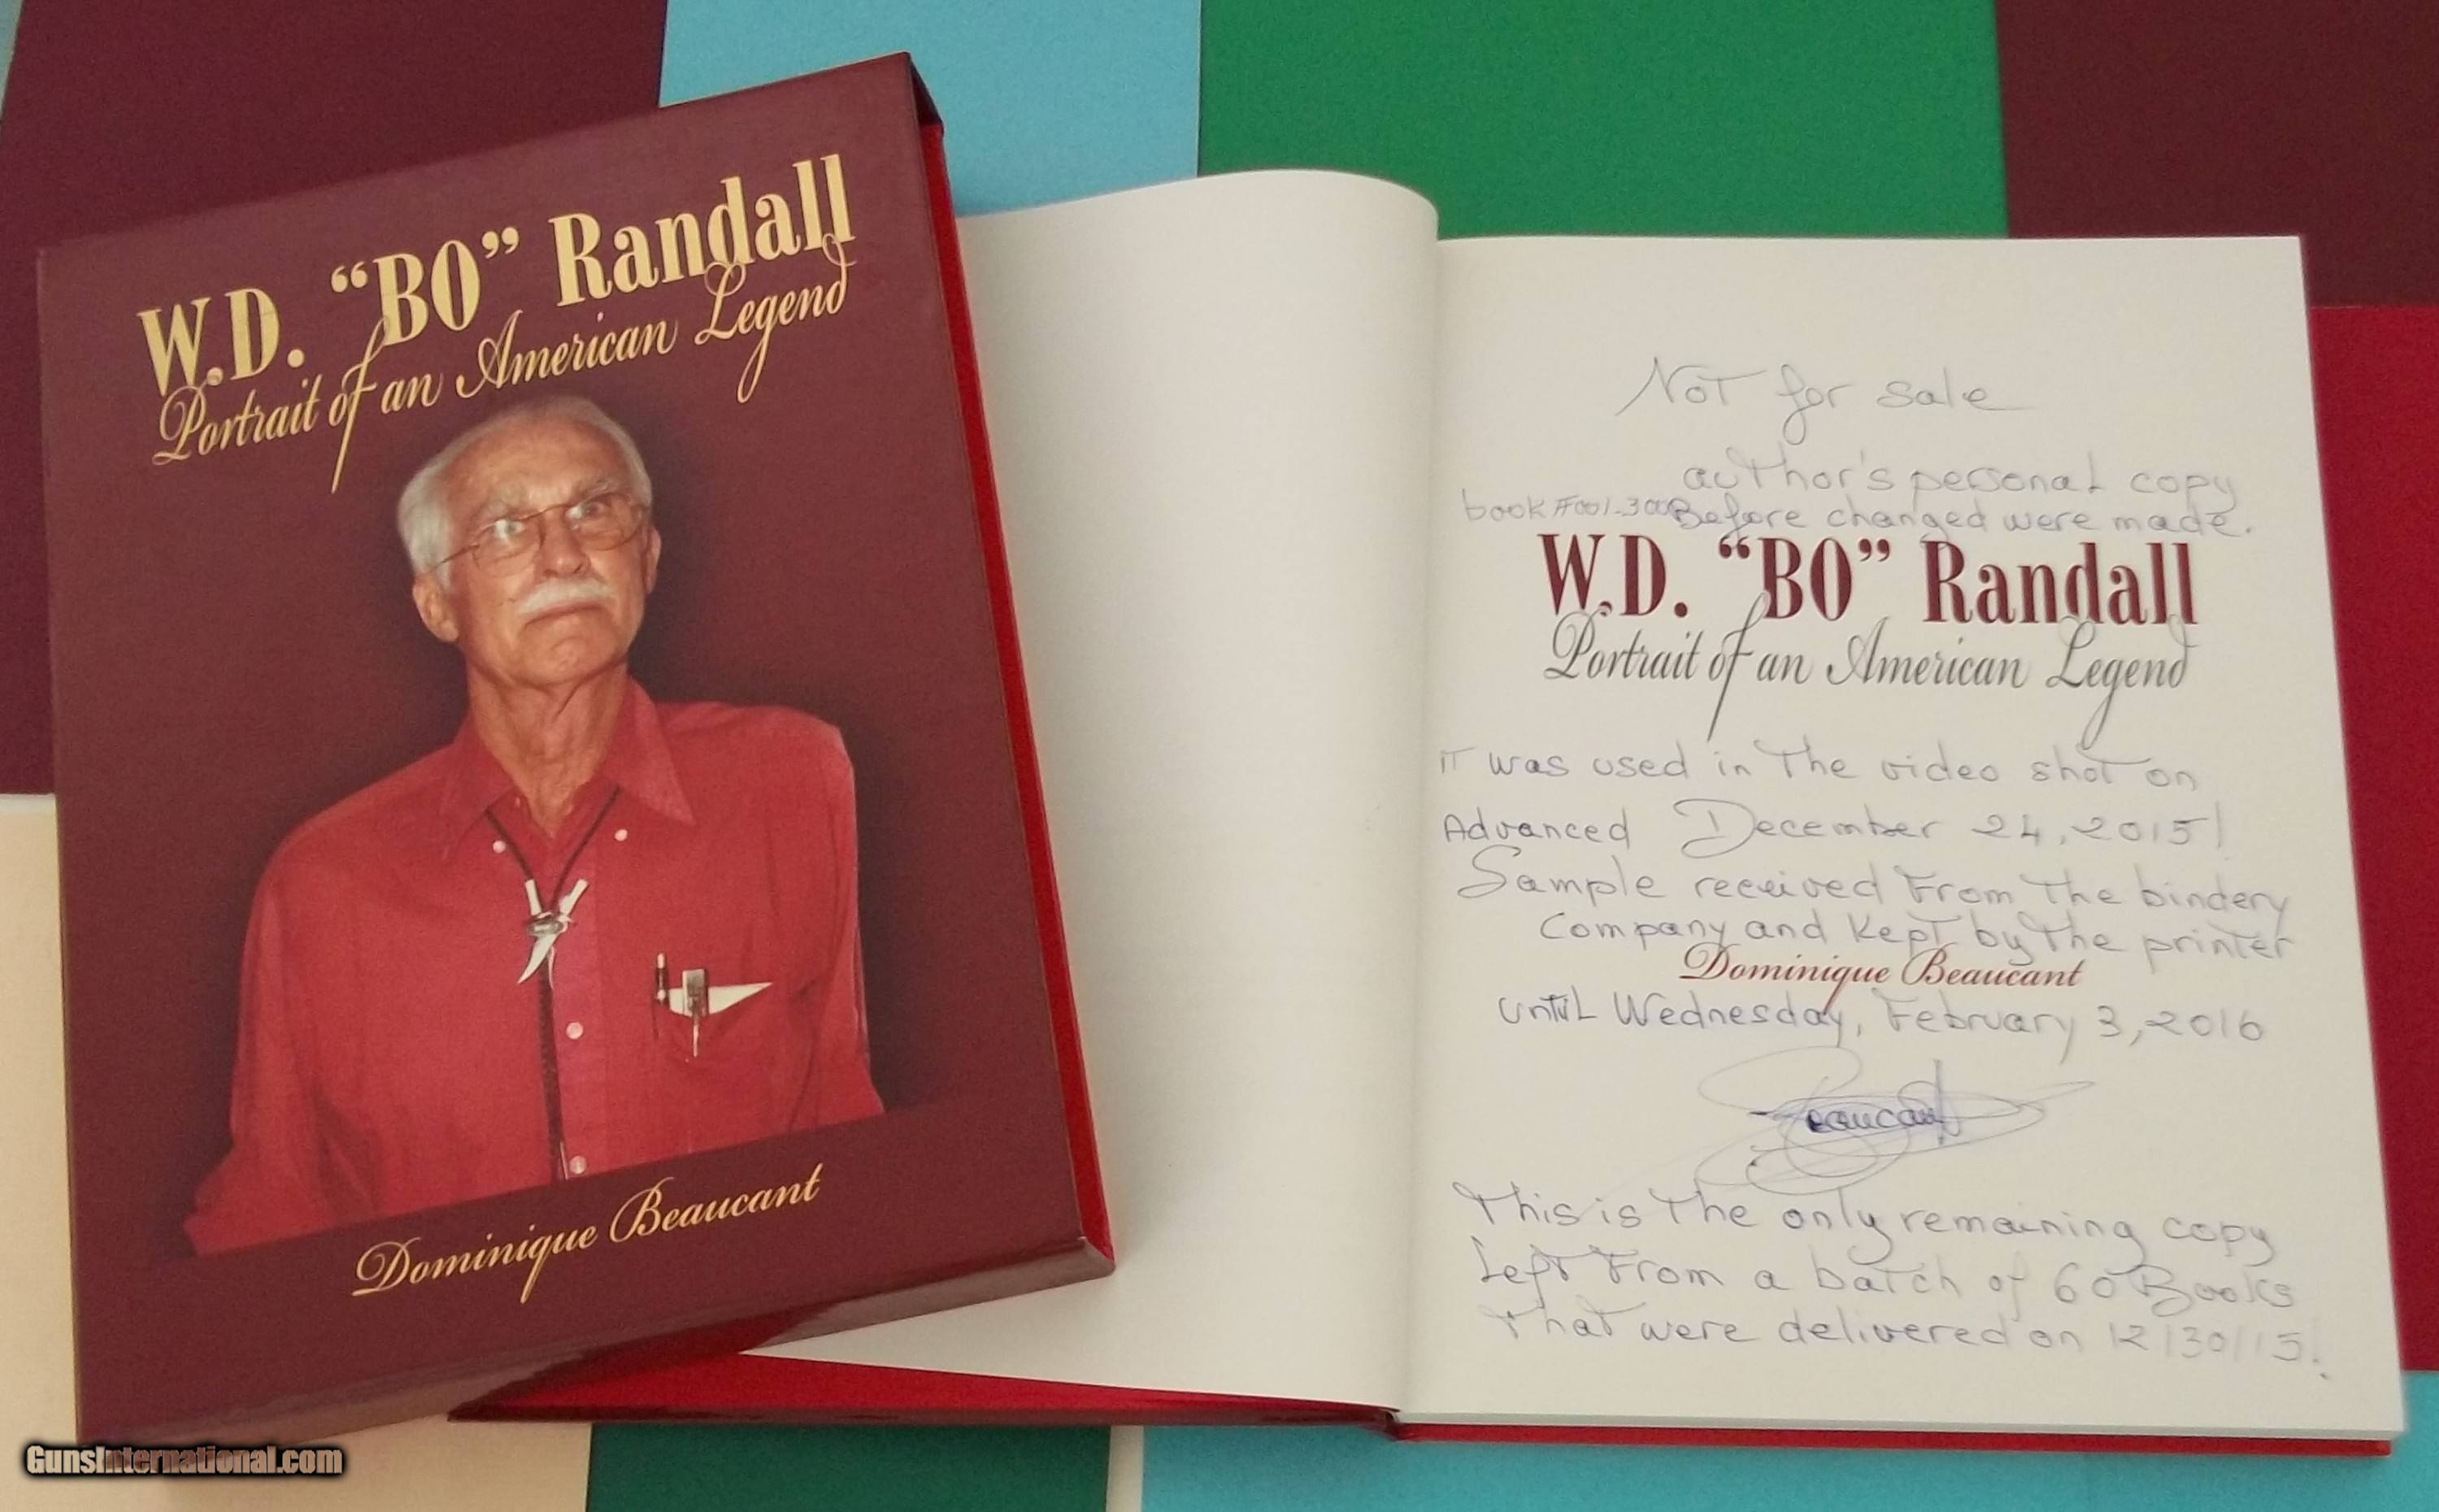 W.D. “BO” Randall
Portrait of an American Legend
Dominique Beaucant
NOT for sale
author's personal copy
book #001-300 Before changed were made.
W.D. “BO” Randall
Portrait of an American Legend
IT was used in The video shot on
Advanced December 24, 2015!
Sample received From The bindery
Company and Kept by The printer
Dominique Beaucant
until Wednesday, February 3, 2016
Beaucant
This is The only remaining copy
Left From a batch of 60 Books
That were delivered on 12/30/15!
GunsInternational.com